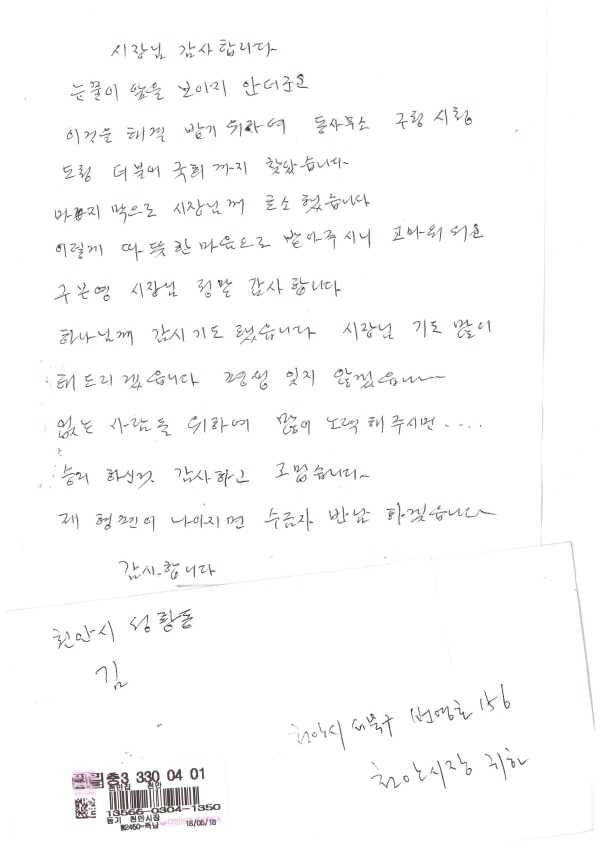 시장님 감사합니다
눈물이 앞을 보이지 안더군요
이것을 해결 받기 위하여 동사무소 구청 시청
도청 더불어 국회 까지 찾았습니다
마지막으로 시장님께 호소 했습니다
이렇게 따뜻한 마음으로 받아주시니 고마워요
구본영 시장님 정말 감사합니다
하나님께 감사기도 했습니다 시장님 기도 많이
해드리겠습니다 평생 잊지 않겠습니다
없는 사람들 위하여 많이 노력 해주시면....
승리 하신것 감사하고 고맙습니다
제 형편이 나아지면 수급자 반납 하겠습니다
감사합니다
천안시 성황동
김
천안시 서북구 번영로 156
천안시장 귀하
충3 330 04 01
천안집 천안
13566-0304-1350
등기 천안시장
₩2460-즉납
18/06/18